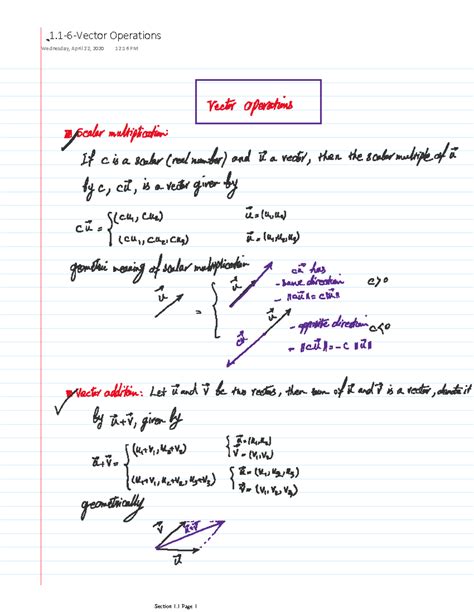 1.1-6-Vector Operations
Wednesday, April 22, 2020 12:16 PM
Vector operations
Scalar multiplication:
If c is a scalar (real number) and u⃗ a vector, then the scalar multiple of u⃗
by c, cu⃗, is a vector given by
cu⃗ = { (cu₁, cu₂) u⃗ = (u₁, u₂)
(cu₁, cu₂, cu₃) u⃗ = (u₁, u₂, u₃)
geometric meaning of scalar multiplication
u⃗ = {
cu⃗ has
- same direction c>0
- ‖cu⃗‖ = c‖u⃗‖
u⃗
cu⃗
- opposite direction c<0
- ‖cu⃗‖ = -c ‖u⃗‖
Vector addition: Let u⃗ and v⃗ be two vectors, then sum of u⃗ and v⃗ is a vector, denote it
by u⃗+v⃗, given by
u⃗+v⃗ = { (u₁+v₁, u₂+v₂) { u⃗ = (u₁, u₂)
v⃗ = (v₁, v₂)
(u₁+v₁, u₂+v₂, u₃+v₃) { u⃗ = (u₁, u₂, u₃)
v⃗ = (v₁, v₂, v₃)
geometrically
v⃗ u⃗+v⃗
u⃗
Section 1.1 Page 1